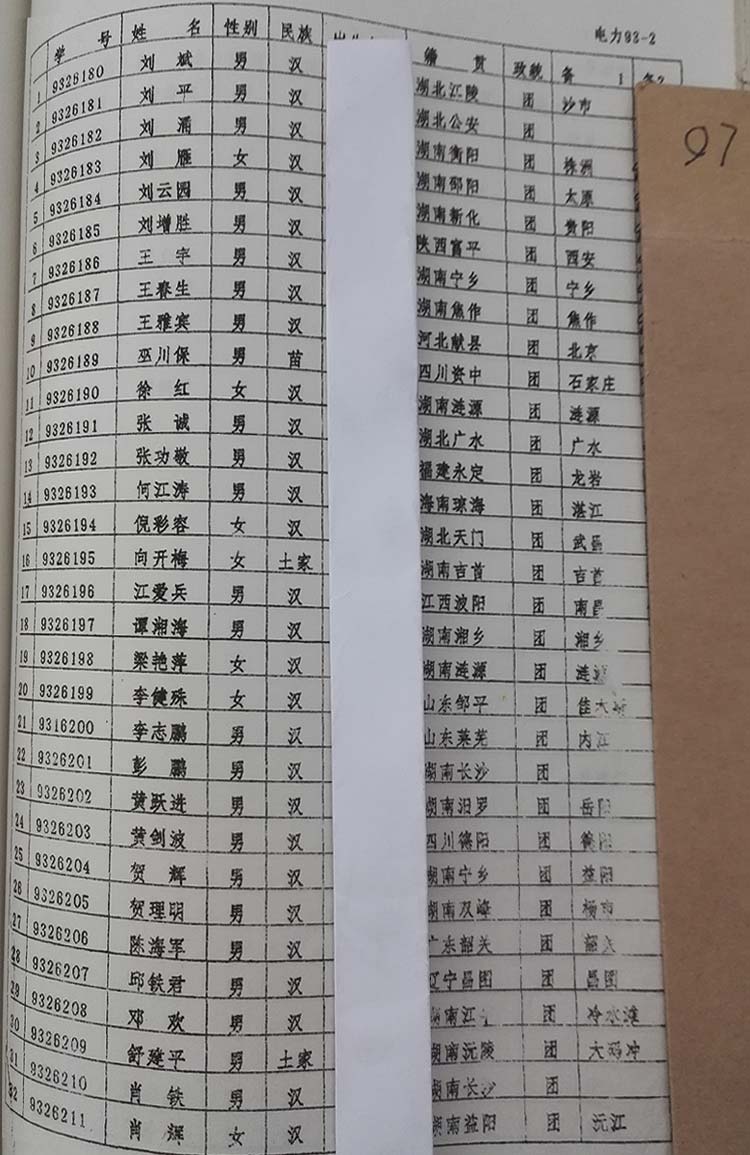 电力93-2
学 号 姓 名 性别 民族 籍 贯 政貌 备 1 备2
97
1 9326180 刘 斌 男 汉 湖北江陵 团 沙市
2 9326181 刘 平 男 汉 湖北公安 团
3 9326182 刘 涌 男 汉 湖南衡阳 团 株洲
4 9326183 刘 雁 女 汉 湖南邵阳 团 太原
5 9326184 刘云园 男 汉 湖南新化 团 贵阳
6 9326185 刘增胜 男 汉 陕西富平 团 西安
7 9326186 王 宇 男 汉 湖南宁乡 团 宁乡
8 9326187 王春生 男 汉 湖南焦作 团 焦作
9 9326188 王雅宾 男 汉 河北献县 团 北京
10 9326189 巫川保 男 苗 四川资中 团 石家庄
11 9326190 徐 红 女 汉 湖南涟源 团 涟源
12 9326191 张 诚 男 汉 湖北广水 团 广水
13 9326192 张功敬 男 汉 福建永定 团 龙岩
14 9326193 何江涛 男 汉 海南琼海 团 湛江
15 9326194 倪彩容 女 汉 湖北天门 团 武昌
16 9326195 向开梅 女 土家 湖南吉首 团 吉首
17 9326196 江爱兵 男 汉 江西波阳 团 南昌
18 9326197 谭湘海 男 汉 湖南湘乡 团 湘乡
19 9326198 梁艳萍 女 汉 湖南涟源 团 涟源
20 9326199 李健殊 女 汉 山东邹平 团 佳木斯
21 9316200 李志鹏 男 汉 山东莱芜 团 内江
22 9326201 彭 鹏 男 汉 湖南长沙 团
23 9326202 黄跃进 男 汉 湖南汨罗 团 岳阳
24 9326203 黄剑波 男 汉 四川德阳 团 德阳
25 9326204 贺 辉 男 汉 湖南宁乡 团 益阳
26 9326205 贺理明 男 汉 湖南双峰 团 杨市
27 9326206 陈海军 男 汉 广东韶关 团 韶关
28 9326207 邱铁君 男 汉 辽宁昌图 团 昌图
29 9326208 邓 欢 男 汉 湖南江 团 冷水滩
30 9326209 舒建平 男 土家 湖南沅陵 团
31 9326210 肖 铁 男 汉 湖南长沙 团
32 9326211 肖 辉 女 汉 湖南益阳 团 沅江